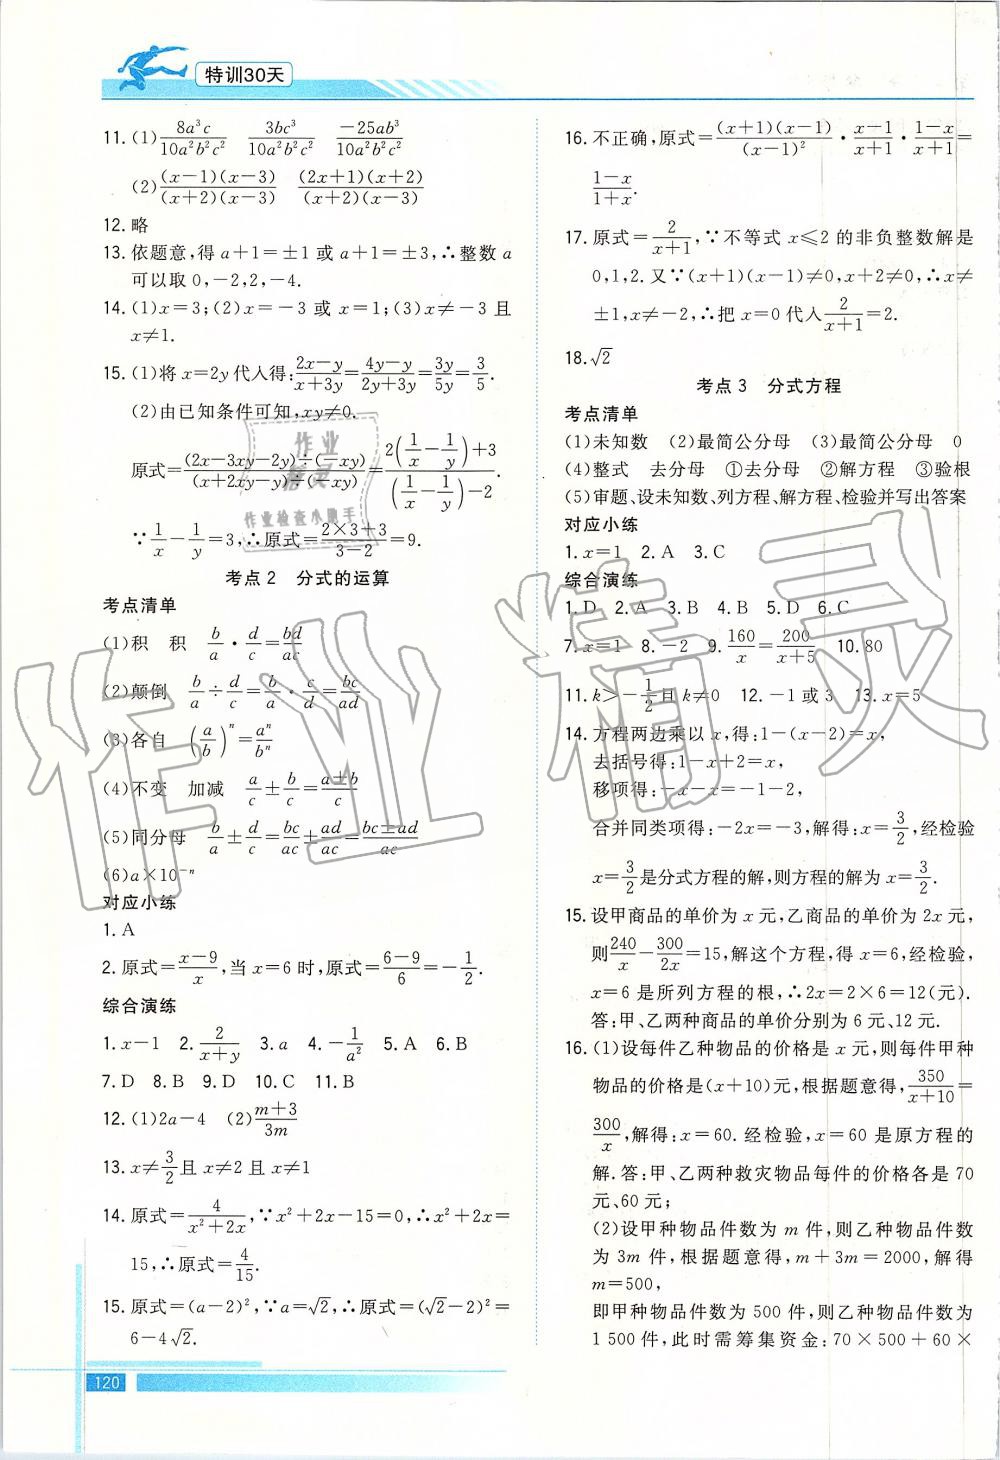 特训30天
11. (1) 8a³c/10a²b²c²  3bc³/10a²b²c²  −25ab³/10a²b²c²
(2) (x−1)(x−3)/(x+2)(x−3)  (2x+1)(x+2)/(x+2)(x−3)
12. 略
13. 依题意,得 a+1=±1 或 a+1=±3,∴整数 a
可以取 0,−2,2,−4.
14. (1)x=3;(2)x=−3 或 x=1;(3)x≠−3 且
x≠1.
15. (1)将 x=2y 代入得: (2x−y)/(x+3y)=(4y−y)/(2y+3y)=3y/5y=3/5.
(2)由已知条件可知,xy≠0.
原式=((2x−3xy−2y)÷(−xy))/((x+2xy−y)÷(−xy))=(2(1/x−1/y)+3)/((1/x−1/y)−2).
∵1/x−1/y=3,∴原式=(2×3+3)/(3−2)=9.
考点 2 分式的运算
考点清单
(1)积 积 b/a·d/c=bd/ac
(2)颠倒 b/a÷d/c=b/a·c/d=bc/ad
(3)各自 (a/b)ⁿ=aⁿ/bⁿ
(4)不变 加减 a/c±b/c=(a±b)/c
(5)同分母 b/a±d/c=bc/ac±ad/ac=(bc±ad)/ac
(6)a×10⁻ⁿ
对应小练
1. A
2. 原式=(x−9)/x,当 x=6 时,原式=(6−9)/6=−1/2.
综合演练
1. x−1 2. 2/(x+y) 3. a 4. −1/a² 5. A 6. B
7. D 8. B 9. D 10. C 11. B
12. (1)2a−4 (2)(m+3)/3m
13. x≠3/2且 x≠2 且 x≠1
14. 原式=4/(x²+2x),∵x²+2x−15=0,∴x²+2x=
15,∴原式=4/15.
15. 原式=(a−2)²,∵a=√2,∴原式=(√2−2)²=
6−4√2.
16. 不正确,原式=(x+1)(x−1)/(x−1)²·(x−1)/(x+1)·(1−x)/(x+1)=
(1−x)/(1+x).
17. 原式=2/(x+1),∵不等式 x≤2 的非负整数解是
0,1,2.又∵(x+1)(x−1)≠0,x+2≠0,∴x≠
±1,x≠−2,∴把 x=0 代入2/(x+1)=2.
18. √2
考点 3 分式方程
考点清单
(1)未知数 (2)最简公分母 (3)最简公分母 0
(4)整式 去分母 ①去分母 ②解方程 ③验根
(5)审题、设未知数、列方程、解方程、检验并写出答案
对应小练
1. x=1 2. A 3. C
综合演练
1. D 2. A 3. B 4. B 5. D 6. C
7. x=1 8. −2 9. 160/x=200/(x+5) 10. 80
11. k>−1/2且 k≠0 12. −1 或 3 13. x=5
14. 方程两边乘以 x,得:1−(x−2)=x,
去括号得:1−x+2=x,
移项得:−x−x=−1−2,
合并同类项得:−2x=−3,解得:x=3/2,经检验
x=3/2是分式方程的解,则方程的解为 x=3/2.
15. 设甲商品的单价为 x 元,乙商品的单价为 2x 元,
则240/x−300/2x=15,解这个方程,得 x=6,经检验,
x=6 是所列方程的根,∴2x=2×6=12(元).
答:甲、乙两种商品的单价分别为 6 元、12 元.
16. (1)设每件乙种物品的价格是 x 元,则每件甲种
物品的价格是(x+10)元,根据题意得,350/(x+10)=
300/x,解得:x=60. 经检验,x=60 是原方程的
解. 答:甲、乙两种救灾物品每件的价格各是 70
元、60 元;
(2)设甲种物品件数为 m 件,则乙种物品件数
为 3m 件,根据题意得,m+3m=2000,解得
m=500,
即甲种物品件数为 500 件,则乙种物品件数为
1 500 件,此时需筹集资金:70×500+60×
120
作业精灵
作业
精灵
作业检查小助手